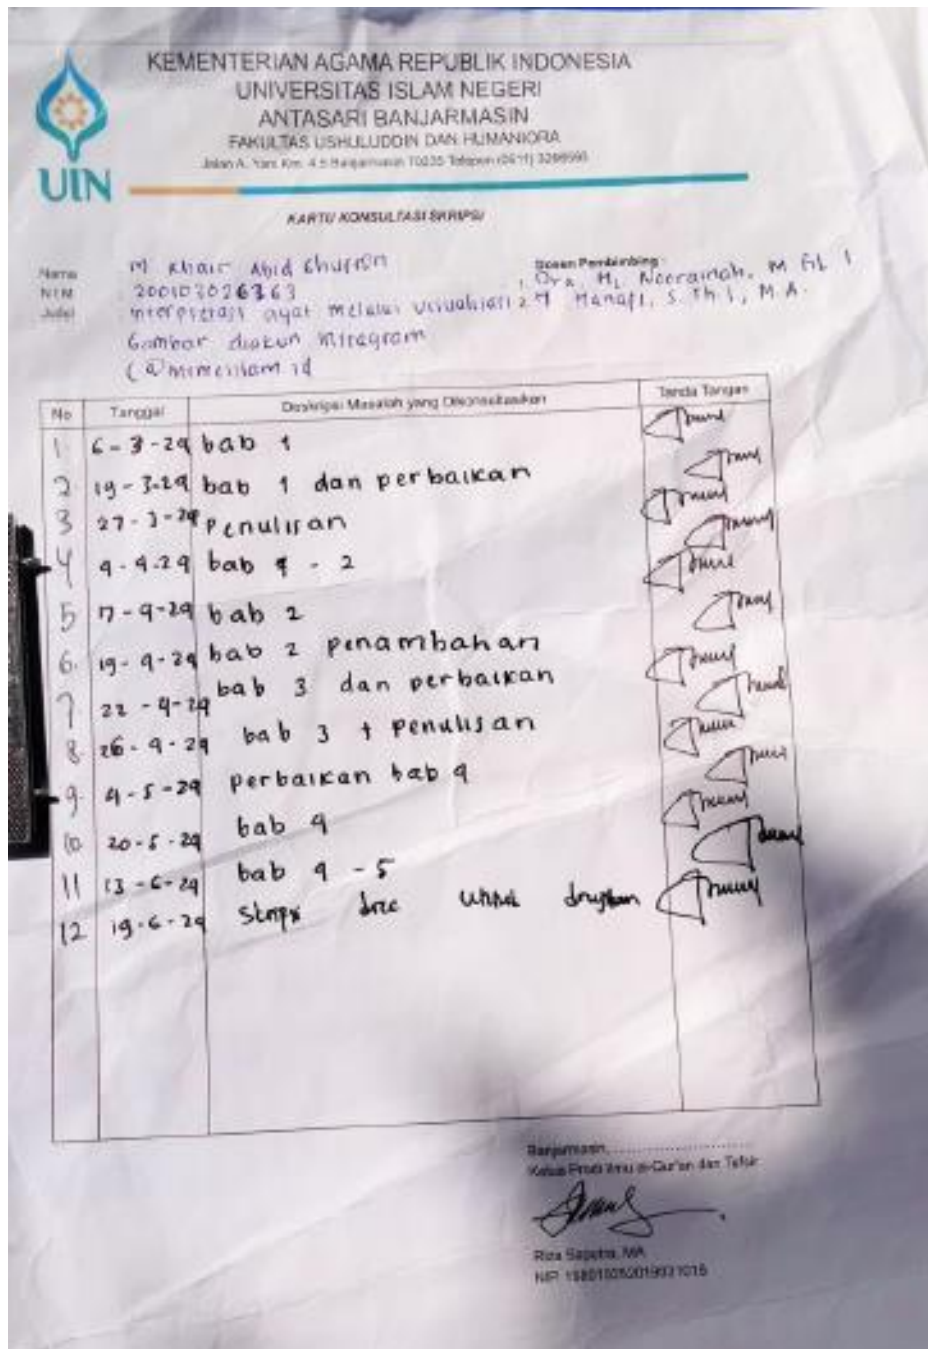 KEMENTERIAN AGAMA REPUBLIK INDONESIA
UNIVERSITAS ISLAM NEGERI
ANTASARI BANJARMASIN
FAKULTAS USHULUDDIN DAN HUMANIORA
Jalan A. Yani Km. 4.5 Banjarmasin 70235 Telepon (0511)
UIN
KARTU KONSULTASI SKRIPSI
Nama M Khair Abid
NIM
Judul interpretasi ayat melalui visualisasi
Gambar diakun instagram
(@memeislam.id
Dosen Pembimbing :
1. Dra. Hj. Noorainah, M
2. Hanafi, S.Th.I, M.A.
No Tanggal Deskripsi Masalah yang Dikonsultasikan Tanda Tangan
1. 6-3-24 bab 1
2. 19-3-24 bab 1 dan perbaikan
3 27-3-24 penulisan
4 4-4-24 bab 1 - 2
5 17-4-24 bab 2
6. 19-4-24 bab 2 penambahan
7 22-4-24 bab 3 dan perbaikan
8. 26-4-24 bab 3 + penulisan
9. 4-5-24 perbaikan bab 4
10 20-5-24 bab 4
11 13-6-24 bab 4 - 5
12 19-6-24 untuk
Banjarmasin,....................
Ketua Prodi Ilmu al-Qur'an dan Tafsir
Riza Saputra, MA
NIP.